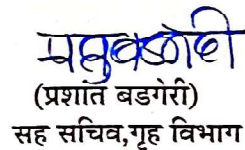 (प्रशांत बडगेरी)
सह सचिव,गृह विभाग